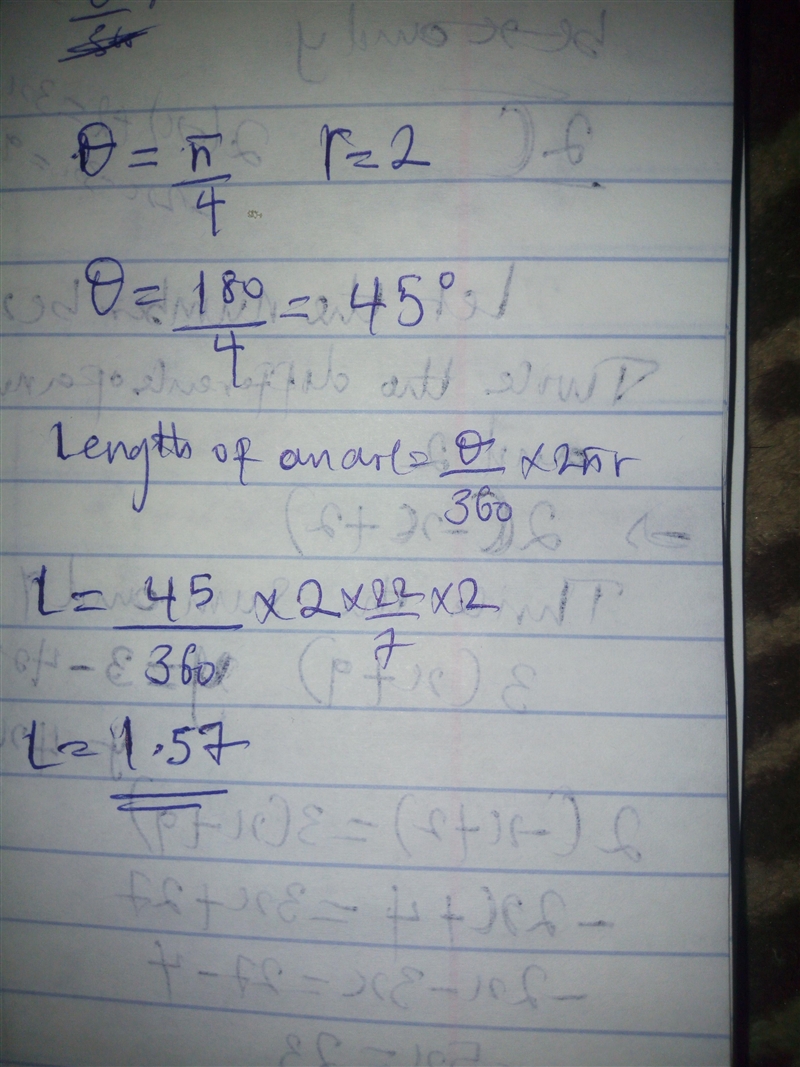 θ = π/4 r=2
θ = 180/4 = 45°
Length of an arc = θ/360 × 2πr
l = 45/360 × 2 × 22/7 × 2
l = 1.57